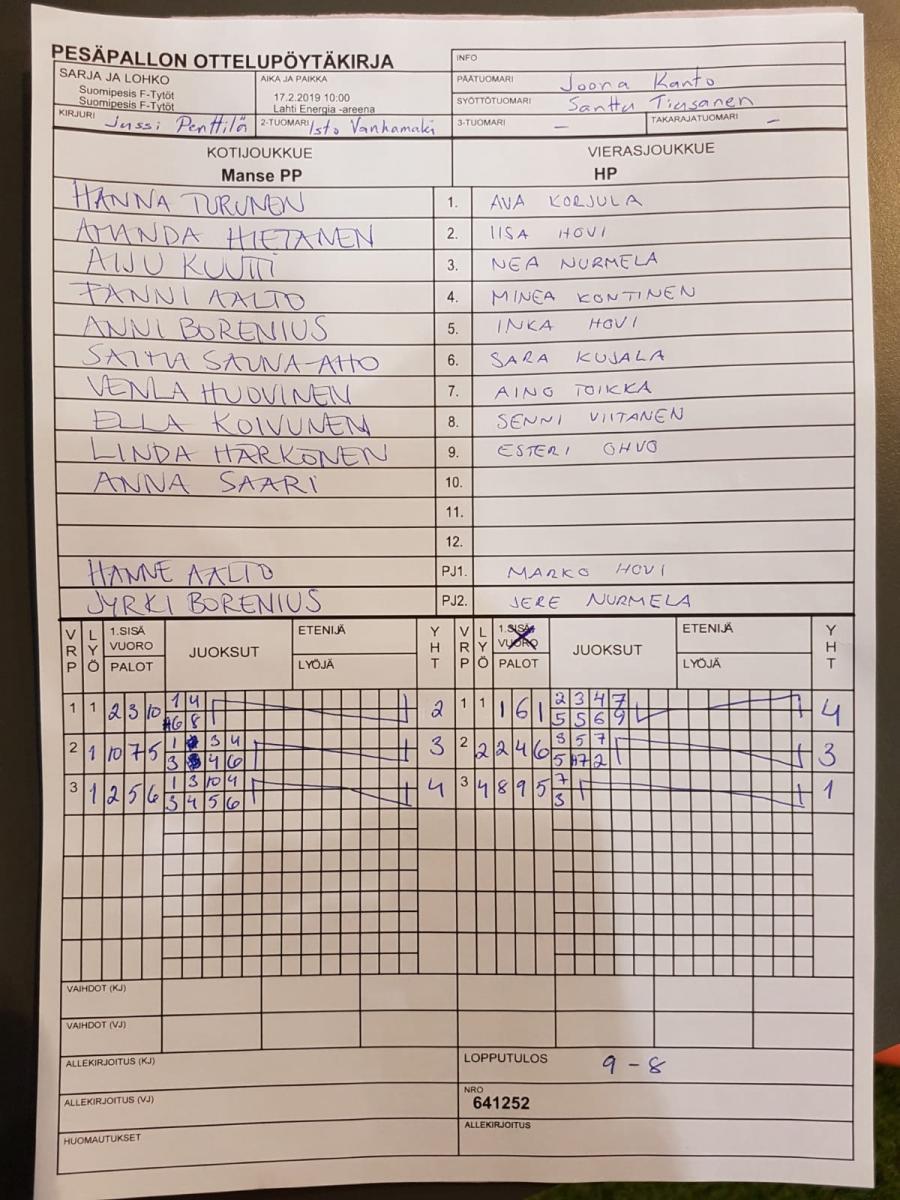 PESÄPALLON OTTELUPÖYTÄKIRJA
INFO
SARJA JA LOHKO
Suomipesis F-Tytöt
Suomipesis F-Tytöt
AIKA JA PAIKKA
17.2.2019 10:00
Lahti Energia -areena
PÄÄTUOMARI Joona Kanto
SYÖTTÖTUOMARI Santtu Tiusanen
KIRJURI Jussi Penttilä
2-TUOMARI Isto Vanhamäki
3-TUOMARI –
TAKARAJATUOMARI –
KOTIJOUKKUE VIERASJOUKKUE
Manse PP HP
HANNA TURUNEN 1. AVA KORJULA
AMANDA HIETANEN 2. IISA HOVI
AIJU KUUTTI 3. NEA NURMELA
FANNI AALTO 4. MINEA KONTINEN
ANNI BORENIUS 5. INKA HOVI
SAIMA SAUNA-AHO 6. SARA KUJALA
VENLA HUOVINEN 7. AINO TOIKKA
ELLA KOIVUNEN 8. SENNI VIITANEN
LINDA HARKONEN 9. ESTERI OHVO
ANNA SAARI 10.
11.
12.
HANNE AALTO PJ1. MARKO HOVI
JYRKI BORENIUS PJ2. JERE NURMELA
VRP LYÖ 1.SISÄVUORO PALOT JUOKSUT ETENIJÄ LYÖJÄ YHT VRP LYÖ 1.SISÄVUORO PALOT JUOKSUT ETENIJÄ LYÖJÄ YHT
1 1 2 3 10 1 4 2 1 1 1 6 1 2 3 4 7 4
6 8 5 5 6 9
2 1 10 7 5 1 3 4 3 2 2 2 4 6 3 5 7 3
3 4 6 5 7 2
3 1 2 5 6 1 3 10 4 4 3 4 8 9 5 7 1
3 4 5 6 3
VAIHDOT (KJ)
VAIHDOT (VJ)
ALLEKIRJOITUS (KJ)
LOPPUTULOS 9 - 8
ALLEKIRJOITUS (VJ)
NRO
641252
HUOMAUTUKSET
ALLEKIRJOITUS